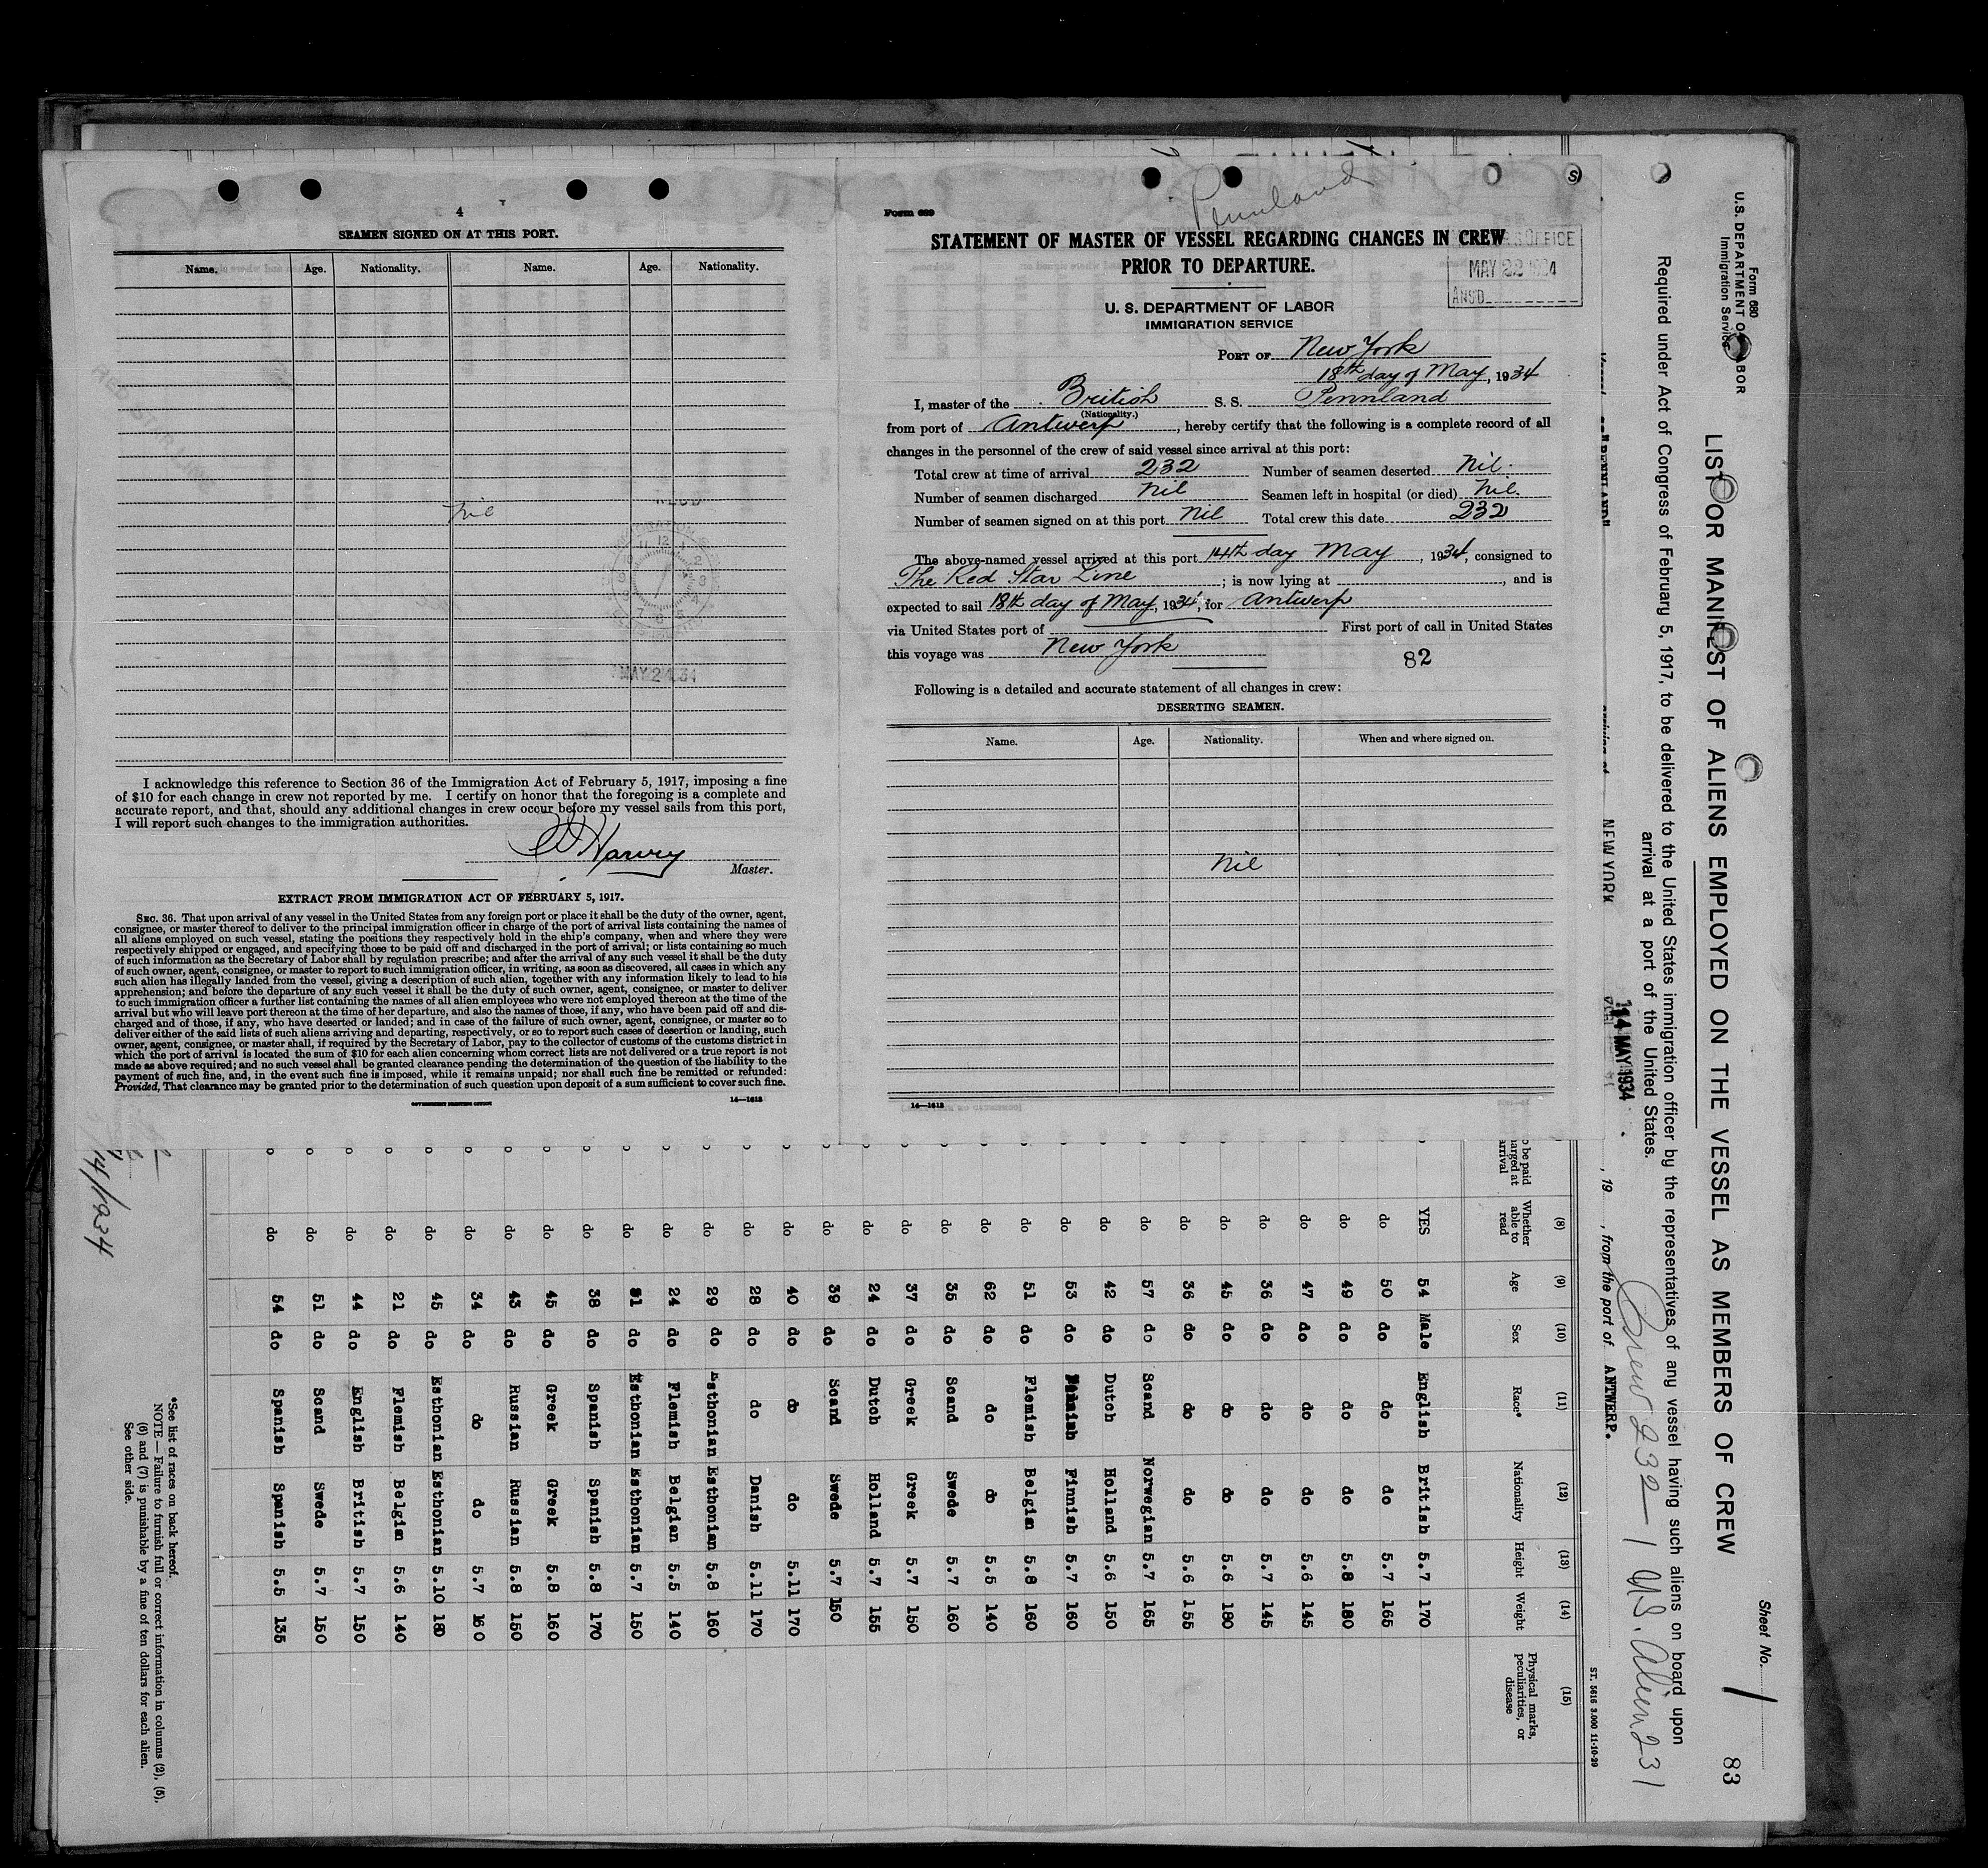 4
SEAMEN SIGNED ON AT THIS PORT.
Name. Age. Nationality. Name. Age. Nationality.
Nil
MAY 24 34
I acknowledge this reference to Section 36 of the Immigration Act of February 5, 1917, imposing a fine
of $10 for each change in crew not reported by me. I certify on honor that the foregoing is a complete and
accurate report, and that, should any additional changes in crew occur before my vessel sails from this port,
I will report such changes to the immigration authorities.
Harvey
Master.
EXTRACT FROM IMMIGRATION ACT OF FEBRUARY 5, 1917.
SEC. 36. That upon arrival of any vessel in the United States from any foreign port or place it shall be the duty of the owner, agent,
consignee, or master thereof to deliver to the principal immigration officer in charge of the port of arrival lists containing the names of
all aliens employed on such vessel, stating the positions they respectively hold in the ship's company, when and where they were
respectively shipped or engaged, and specifying those to be paid off and discharged in the port of arrival; or lists containing so much
of such information as the Secretary of Labor shall by regulation prescribe; and after the arrival of any such vessel it shall be the duty
of such owner, agent, consignee, or master to report to such immigration officer, in writing, as soon as discovered, all cases in which any
such alien has illegally landed from the vessel, giving a description of such alien, together with any information likely to lead to his
apprehension; and before the departure of any such vessel it shall be the duty of such owner, agent, consignee, or master to deliver
to such immigration officer a further list containing the names of all alien employees who were not employed thereon at the time of the
arrival but who will leave port thereon at the time of her departure, and also the names of those, if any, who have been paid off and dis-
charged and of those, if any, who have deserted or landed; and in case of the failure of such owner, agent, consignee, or master so to
deliver either of the said lists of such aliens arriving and departing, respectively, or so to report such cases of desertion or landing, such
owner, agent, consignee, or master shall, if required by the Secretary of Labor, pay to the collector of customs of the customs district in
which the port of arrival is located the sum of $10 for each alien concerning whom correct lists are not delivered or a true report is not
made as above required; and no such vessel shall be granted clearance pending the determination of the question of the liability to the
payment of such fine, and, in the event such fine is imposed, while it remains unpaid; nor shall such fine be remitted or refunded:
Provided, That clearance may be granted prior to the determination of such question upon deposit of a sum sufficient to cover such fine.
GOVERNMENT PRINTING OFFICE 14—1613
Pennland
Form 689
STATEMENT OF MASTER OF VESSEL REGARDING CHANGES IN CREW
PRIOR TO DEPARTURE.
OFFICE
MAY 22 1934
ANS'D
U. S. DEPARTMENT OF LABOR
IMMIGRATION SERVICE
PORT OF New York
18th day of May, 1934
I, master of the British S. S. Pennland
(Nationality.)
from port of Antwerp, hereby certify that the following is a complete record of all
changes in the personnel of the crew of said vessel since arrival at this port:
Total crew at time of arrival 232 Number of seamen deserted Nil.
Number of seamen discharged Nil Seamen left in hospital (or died) Nil.
Number of seamen signed on at this port Nil Total crew this date 232
The above-named vessel arrived at this port 14th day May, 1934, consigned to
The Red Star Line; is now lying at , and is
expected to sail 18th day of May, 1934, for Antwerp
via United States port of First port of call in United States
this voyage was New York
82
Following is a detailed and accurate statement of all changes in crew:
DESERTING SEAMEN.
Name. Age. Nationality. When and where signed on.
Nil
14—1613
Sheet No. 1
83
Form 680
U.S. DEPARTMENT OF LABOR
Immigration Service
LIST OR MANIFEST OF ALIENS EMPLOYED ON THE VESSEL AS MEMBERS OF CREW
Required under Act of Congress of February 5, 1917, to be delivered to the United States immigration officer by the representatives of any vessel having such aliens on board upon
arrival at a port of the United States.
Crew 232 — 1 US. Alien 231
NEW YORK 14 MAY 1934 , 19 , from the port of ANTWERP.
ST. 5616 3.000 11-10-29
(8) (9) (10) (11) (12) (13) (14) (15)
be paid
arged at
arrival
Whether able to read Age Sex Race* Nationality Height Weight Physical marks, peculiarities, or disease
YES 54 Male English British 5.7 170
do 50 do do do 5.7 165
do 49 do do do 5.8 180
do 47 do do do 5.6 145
do 36 do do do 5.7 145
do 45 do do do 5.6 180
do 36 do do do 5.6 155
do 57 do Scand Norwegian 5.7 165
do 42 do Dutch Holland 5.6 150
do 53 do Finnish 5.7 160
do 51 do Flemish Belgim 5.8 160
do 62 do do do 5.5 140
do 35 do Scand Swede 5.7 160
do 37 do Greek Greek 5.7 150
do 24 do Dutch Holland 5.7 155
do 39 do Scand Swede 5.7 150
do 40 do do do 5.11 170
do 28 do do Danish 5.11 170
do 29 do Esthonian Esthonian 5.8 160
do 24 do Flemish Belgian 5.5 140
do 31 do Esthonian Esthonian 5.7 150
do 38 do Spanish Spanish 5.8 170
do 45 do Greek Greek 5.8 160
do 43 do Russian Russian 5.8 150
do 34 do do do 5.7 160
do 45 do Esthonian Esthonian 5.10 180
do 21 do Flemish Belgim 5.6 140
do 44 do English British 5.7 150
do 51 do Scand Swede 5.7 150
do 54 do Spanish Spanish 5.5 135
*See list of races on back hereof.
NOTE — Failure to furnish full or correct information in columns (2), (5),
(6) and (7) is punishable by a fine of ten dollars for each alien.
See other side.
14/1934